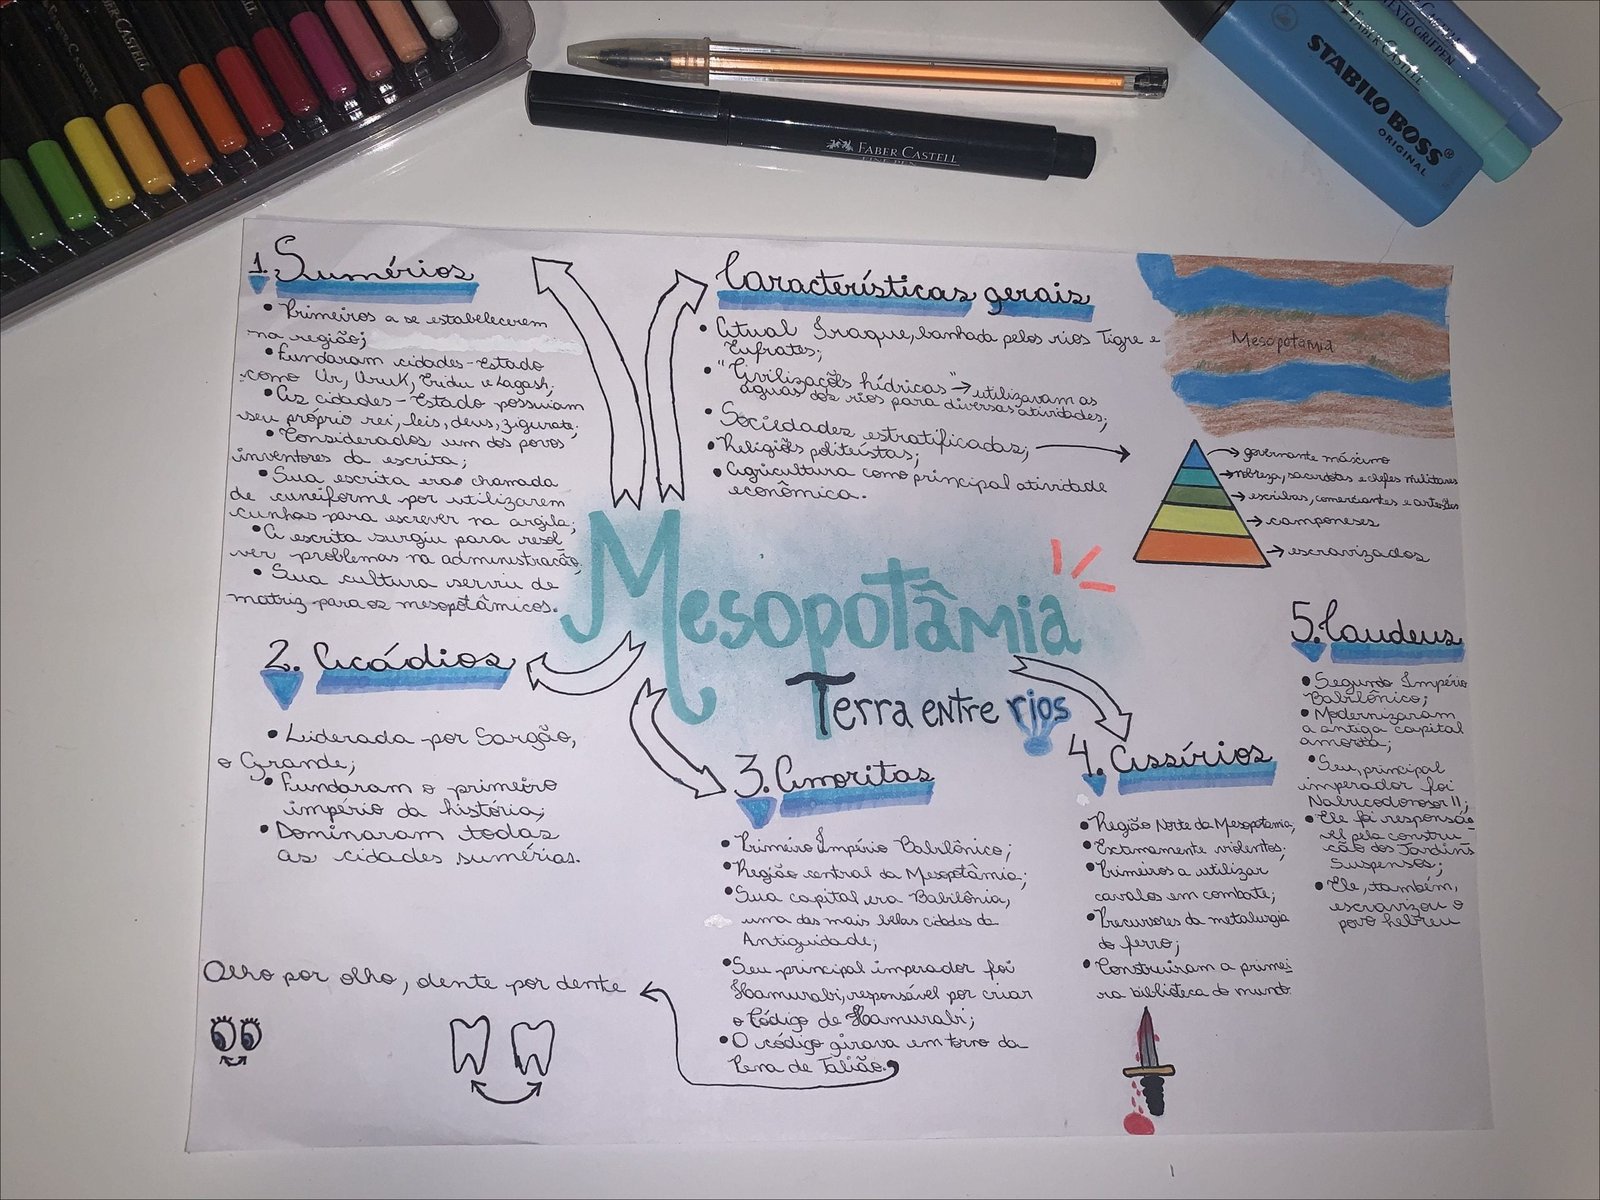 FABER CASTELL
FABER CASTELL
STABILO BOSS
ORIGINAL
1. Sumérios
• Primeiros a se estabelecerem
na região;
• Fundaram cidades-Estado
como Ur, Uruk, Eridu e Lagash;
• As cidades-Estado possuiam
seu próprio rei, leis, deus, zigurate;
• Considerados um dos povos
inventores da escrita;
• Sua escrita era chamada
de cuneiforme por utilizarem
cunhas para escrever na argila;
• A escrita surgiu para resol
ver problemas na administração;
• Sua cultura serviu de
matriz para os mesopotâmicos.
Características gerais
• Atual Iraque, banhada pelos rios Tigre e
Eufrates;
• "Civilizações hídricas" → utilizavam as
águas dos rios para diversas atividades;
• Sociedades estratificadas;
• Religiões politeístas;
• Agricultura como principal atividade
econômica.
Mesopotâmia
→ governante máximo
→ nobreza, sacerdotes e chefes militares
→ escribas, comerciantes e artesãos
→ camponeses
→ escravizados
Mesopotâmia
Terra entre rios
2. Acádios
• Liderada por Sargão,
o Grande;
• Fundaram o primeiro
império da história;
• Dominaram todas
as cidades sumérias.
3. Amoritas
• Primeiro Império Babilônico;
• Região central da Mesopotâmia;
• Sua capital era Babilônia,
uma das mais belas cidades da
Antiguidade;
• Seu principal imperador foi
Hamurabi, responsável por criar
o Código de Hamurabi;
• O código girava em torno da
Pena de Talião.
Olho por olho, dente por dente
4. Assírios
• Região Norte da Mesopotâmia;
• Extremamente violentos;
• Primeiros a utilizar
cavalos em combate;
• Precursores da metalurgia
do ferro;
• Construiram a primei
ra biblioteca do mundo.
5. Caudeus
• Segundo Império
Babilônico;
• Modernizaram
a antiga capital
amorita;
• Seu, principal
imperador foi
Nabucodonosor II;
• Ele foi responsá-
vel pela constru-
ção dos Jardins
Suspensos;
• Ele, também,
escravizou o
povo hebreu